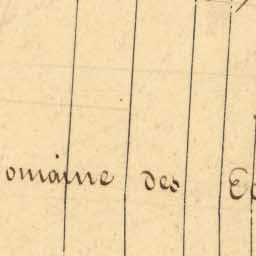 omaine des E